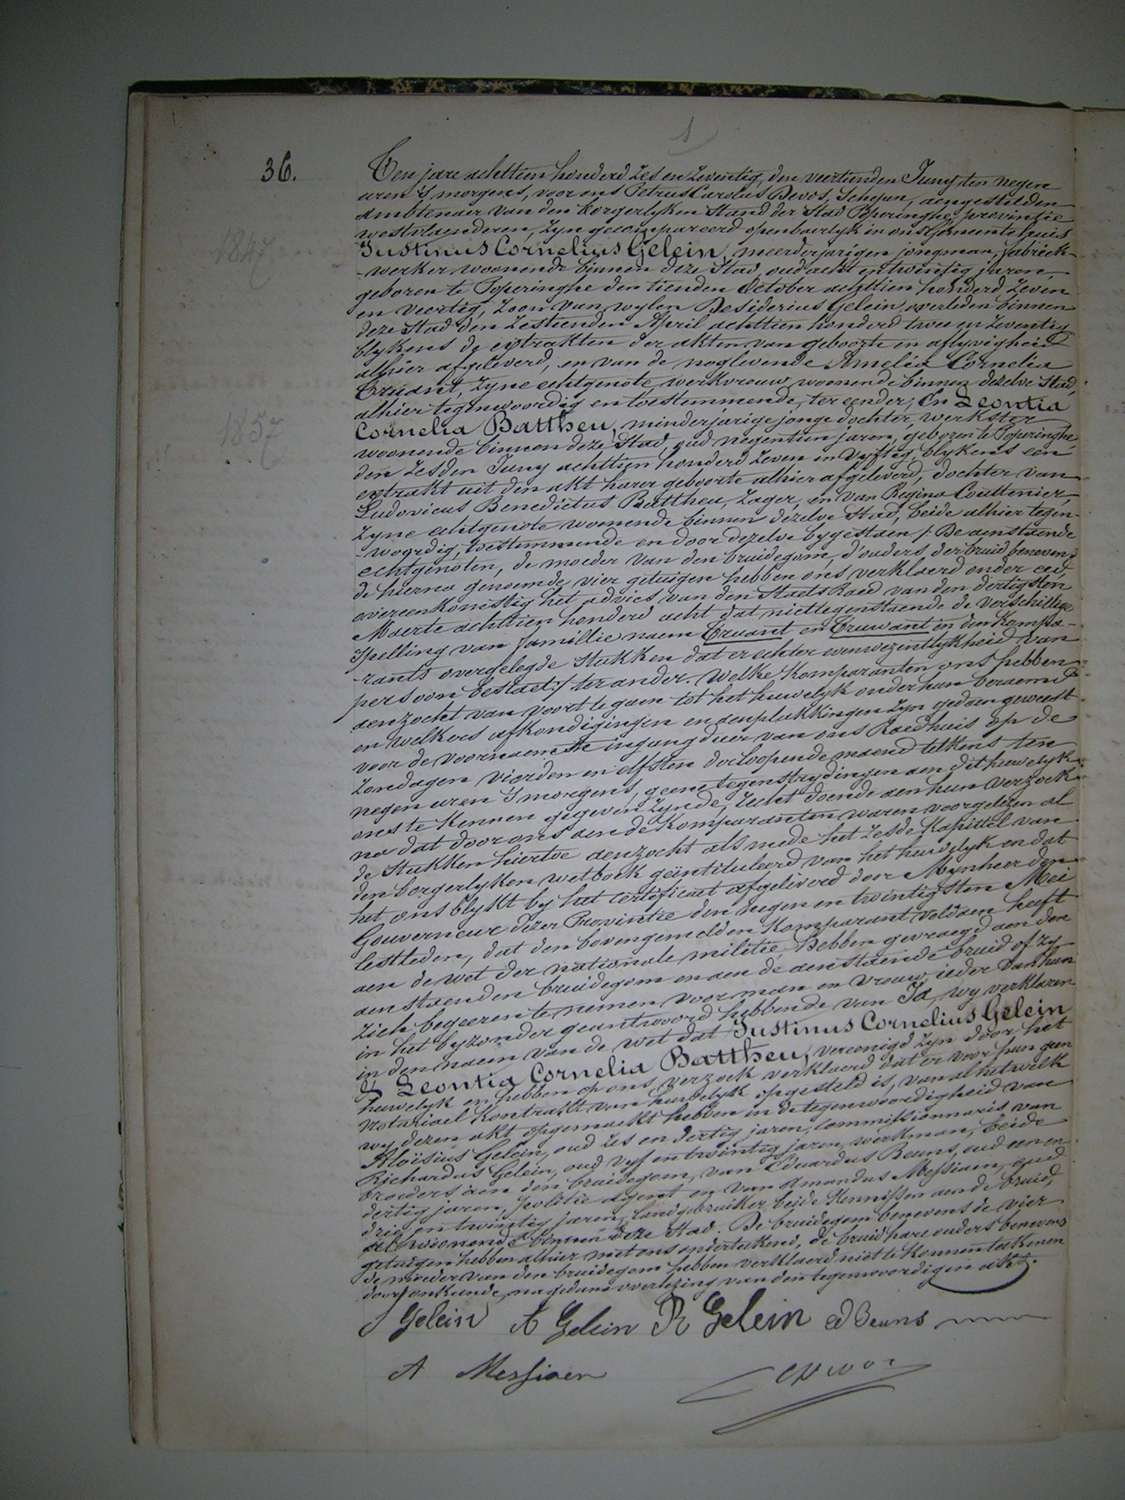 1
36.
Ten jare achttien honderd zes en zeventig, den veertienden Juny ten negen
uren 's morgens, voor ons Petrus Carolus Devos, Schepen, aengestelden
ambtenaer van den borgerlyken Stand der Stad Poperinghe, provintie
westvlaenderen, zyn gecompareerd openbaerlyk in ons Gemeentehuis
Justinus Cornelius Gelein, meerderjarigen jongman, fabriek-
-werker woonende binnen deze Stad, oud acht en twintig jaren,
geboren te Poperinghe den tienden October achttien honderd zeven
en veertig, zoon van wylen Desiderius Gelein, overleden binnen
deze Stad den zestienden April achttien honderd twee en zeventig
blykens de extrakten der akten van geboorte en aflyvigheid
alhier afgeleverd, en van de noglevende Amelia Cornelia
Truant, zyne echtgenote, werkvrouw, woonende binnen dezelve Stad,
alhier tegenwoordig en toestemmende, ter eender; En Leontia
Cornelia Battheu, minderjarige jonge dochter, werkster
woonende binnen deze Stad, oud negentien jaren, geboren te Poperinghe
den zesden Juny achttien honderd zeven en vyftig, blykens een
extrakt uit den akt harer geboorte alhier afgeleverd, dochter van
Ludovicus Benedictus Battheu, Zager, en van Regina Couttenier
zyne echtgenote woonende binnen dezelve Stad, beide alhier tegen-
woordig, toestemmende en door dezelve bygestaen / De aenstaende
echtgenoten, de moeder van den bruidegom, d'ouders der bruid benevens
de hierna genoemde vier getuigen hebben ons verklaerd onder eed
overeenkomstig het advies van den Staets Raed van den dertigsten
Maerte achttien honderd acht dat niettegenstaende de verschillige
Spelling van familie naem Truant en Truwant in den Kompa-
-rants overgelegde Stukken dat er echter eenwezentlykheid van
persoon bestaet / ter ander. Welke Komparanten ons hebben
aenzocht van voort te gaen tot het huwelyk onder hun beraemd
en welkers afkondigingen en aenplakkingen zyn gedaen geweest
voor de voornaemste ingang duer van ons Raedhuis op de
Zondagen vierden en elfsten der loopende maend telkens ten
negen uren 's morgens, geene tegenstrydingen aen dit huwelyk
ons te kennen gegeven zynde, recht doende aen hun verzoek
na dat door ons aen de Komparanten waren voorgelezen al
de Stukken hiertoe aenzocht als mede het zesde Kapittel van
den borgerlyken wetboek geintituleerd van het huwelyk en dat
het ons blykt by het certificaet afgeleverd door Mynheer den
Gouverneur dezer Provintie den negen en twintigsten Mei
lestleden, dat den bovengemelden Komparant voldaen heeft
aen de wet der nationale militie, Hebben gevraegd aen den
aenstaenden bruidegom en aen de aenstaende bruid of zy
zich begeeren te nemen voor man en vrouw, ieder van hun
in het byzonder geantwoord hebbende van Ja, wy verklaren
in den naem van de wet dat Justinus Cornelius Gelein
& Leontia Cornelia Battheu, vereenigd zyn door het
huwelyk en hebben op ons verzoek verklaerd dat er voor hun geen
notariael Kontrakt van huwelyk opgesteld is, van al hetwelk
wy dezen akt opgemaekt hebben in de tegenwoordigheid van
Aloïsius Gelein, oud zes en dertig jaren, commissionnaris van
Richardus Gelein, oud vyf en twintig jaren, werkman, beide
broeders aen den bruidegom, van Eduardus Beuns, oud een en
dertig jaren, politie agent en van Amandus Messiaen, oud
drie en twintig jaren, landgebruiker beide Kennissen aen de bruid,
alle woonende binnen deze Stad. De bruidegom benevens de vier
getuigen hebben alhier met ons onderteekend, de bruid hare ouders benevens
de moeder van den bruidegom hebben verklaerd niet te konnen teekenen
door onkunde, na gedane voorlezing van den tegenwoordigen akt.
J Gelein A Gelein R Gelein Ed Beuns
A Messiaen